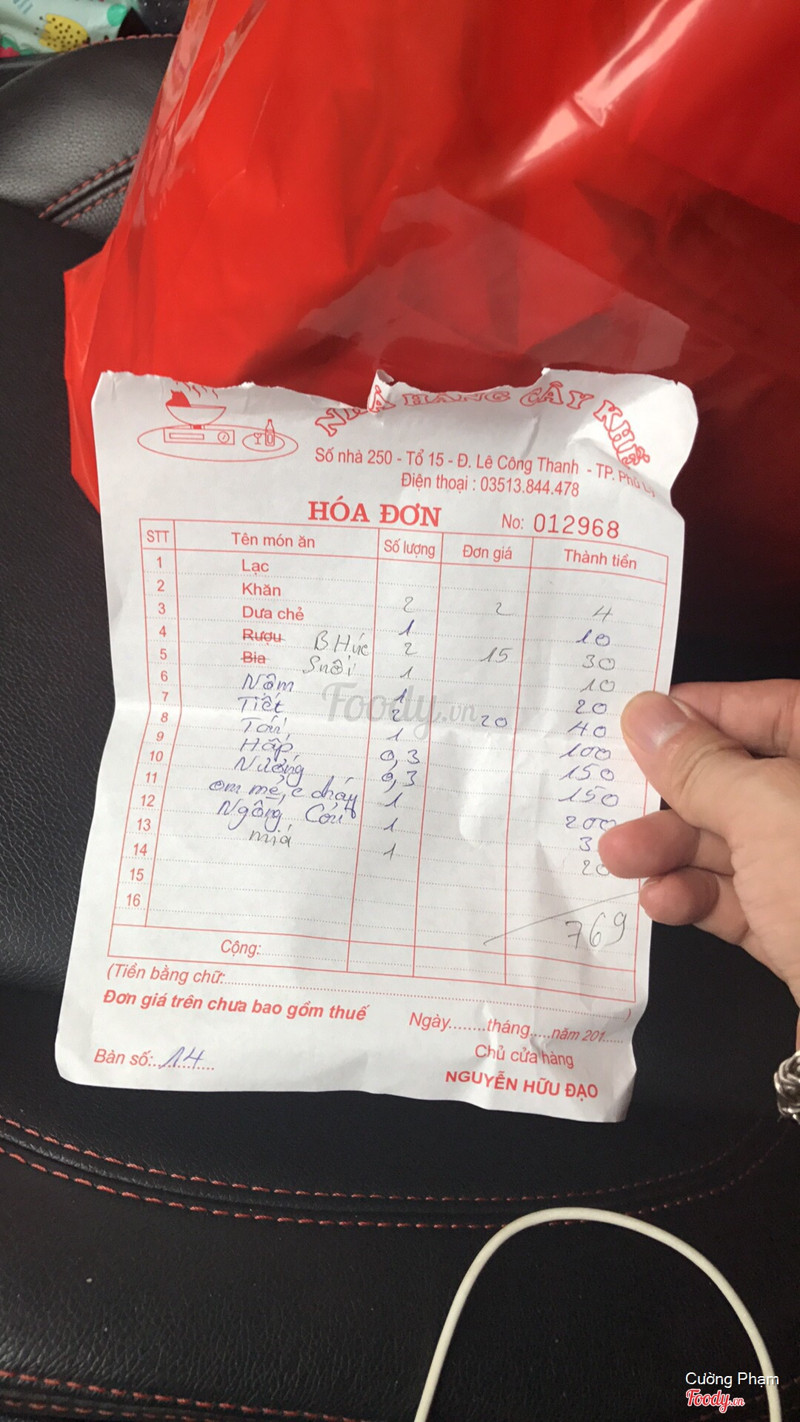 NHÀ HÀNG CÂY KHẾ
Số nhà 250 - Tổ 15 - Đ. Lê Công Thanh - TP. Phủ Lý
Điện thoại : 03513.844.478
HÓA ĐƠN No: 012968
STT Tên món ăn Số lượng Đơn giá Thành tiền
1 Lạc
2 Khăn 2 2 4
3 Dưa chẻ 1 10
4 Rượu B Húc 2 15 30
5 Bia Suối 1 10
6 Nộm 1 20
7 Tiết 2 20 40
8 Tái 1 100
9 Hấp 0,3 150
10 Nướng 0,3 150
11 om mẻ, c cháy 1 200
12 Ngồng Cải 1 3
13 mía 1 20
14
15
16
769
Cộng:
(Tiền bằng chữ:........)
Đơn giá trên chưa bao gồm thuế
Ngày........tháng.....năm 201.....
Bàn số:..14......
Chủ cửa hàng
NGUYỄN HỮU ĐẠO
Foody.vn
Cường Phạm
Foody.vn